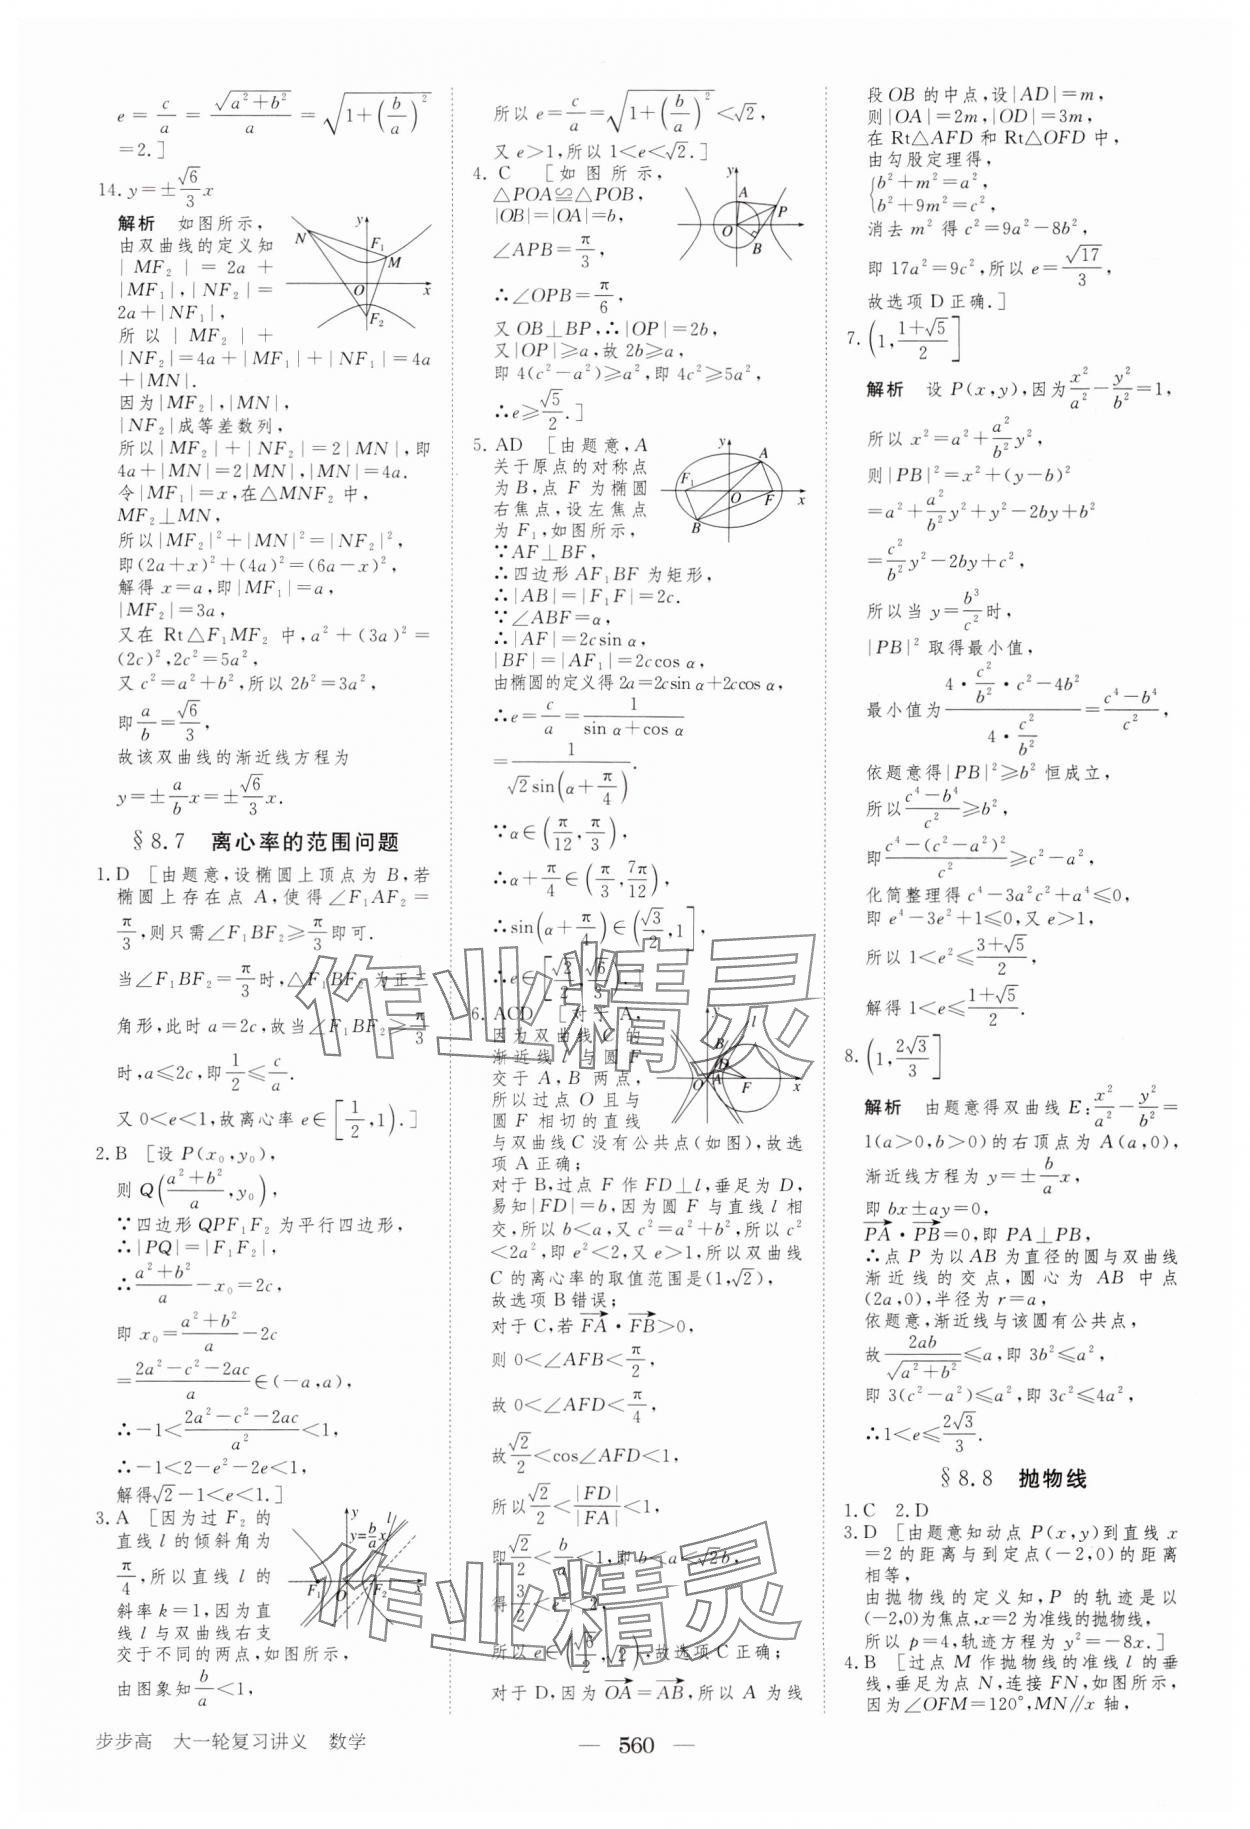 e=c/a=√(a²+b²)/a=√(1+(b/a)²)
=2.]
14.y=±√6/3x
解析 如图所示,
由双曲线的定义知
|MF₂|=2a+
|MF₁|,|NF₂|=
2a+|NF₁|,
所以|MF₂|+
|NF₂|=4a+|MF₁|+|NF₁|=4a
+|MN|.
因为|MF₂|,|MN|,
|NF₂|成等差数列,
所以|MF₂|+|NF₂|=2|MN|,即
4a+|MN|=2|MN|,|MN|=4a.
令|MF₁|=x,在△MNF₂中,
MF₂⊥MN,
所以|MF₂|²+|MN|²=|NF₂|²,
即(2a+x)²+(4a)²=(6a-x)²,
解得x=a,即|MF₁|=a,
|MF₂|=3a,
又在Rt△F₁MF₂中,a²+(3a)²=
(2c)²,2c²=5a²,
又c²=a²+b²,所以2b²=3a²,
即a/b=√6/3,
故该双曲线的渐近线方程为
y=±a/bx=±√6/3x.
§8.7 离心率的范围问题
1.D [由题意,设椭圆上顶点为B,若
椭圆上存在点A,使得∠F₁AF₂=
π/3,则只需∠F₁BF₂≥π/3即可.
当∠F₁BF₂=π/3时,△F₁BF₂为正三
角形,此时a=2c,故当∠F₁BF₂≥π/3
时,a≤2c,即1/2≤c/a.
又0<e<1,故离心率e∈[1/2,1).]
2.B [设P(x₀,y₀),
则Q((a²+b²)/a,y₀),
∵四边形QPF₁F₂为平行四边形,
∴|PQ|=|F₁F₂|,
∴(a²+b²)/a-x₀=2c,
即x₀=(a²+b²)/a-2c
=(2a²-c²-2ac)/a∈(-a,a),
∴-1<(2a²-c²-2ac)/a²<1,
∴-1<2-e²-2e<1,
解得√2-1<e<1.]
3.A [因为过F₂的
直线l的倾斜角为
π/4,所以直线l的
斜率k=1,因为直
线l与双曲线右支
交于不同的两点,如图所示,
由图象知b/a<1,
所以e=c/a=√(1+(b/a)²)<√2,
又e>1,所以1<e<√2.]
4.C [如图所示,
△POA≌△POB,
|OB|=|OA|=b,
∠APB=π/3,
∴∠OPB=π/6,
又OB⊥BP,∴|OP|=2b,
又|OP|≥a,故2b≥a,
即4(c²-a²)≥a²,即4c²≥5a²,
∴e≥√5/2.]
5.AD [由题意,A
关于原点的对称点
为B,点F为椭圆
右焦点,设左焦点
为F₁,如图所示,
∵AF⊥BF,
∴四边形AF₁BF为矩形,
∴|AB|=|F₁F|=2c.
∵∠ABF=α,
∴|AF|=2csin α,
|BF|=|AF₁|=2ccos α,
由椭圆的定义得2a=2csin α+2ccos α,
∴e=c/a=1/(sin α+cos α)
=1/(√2sin(α+π/4)).
∵α∈(π/12,π/3),
∴α+π/4∈(π/3,7π/12),
∴sin(α+π/4)∈(√3/2,1],
∴e∈[√2/2,√6/3).]
6.ACD [对于A,
因为双曲线C的
渐近线l与圆F
交于A,B两点,
所以过点O且与
圆F相切的直线
与双曲线C没有公共点(如图),故选
项A正确;
对于B,过点F作FD⊥l,垂足为D,
易知|FD|=b,因为圆F与直线l相
交,所以b<a,又c²=a²+b²,所以c²
<2a²,即e²<2,又e>1,所以双曲线
C的离心率的取值范围是(1,√2),
故选项B错误;
对于C,若FA→·FB→>0,
则0<∠AFB<π/2,
故0<∠AFD<π/4,
故√2/2<cos∠AFD<1,
所以√2/2<|FD|/|FA|<1,
即√2/2<b/a<1,即b<a<√2b,
得3/2<e²<2,
所以e∈(√6/2,√2),故选项C正确;
对于D,因为OA→=AB→,所以A为线
段OB的中点,设|AD|=m,
则|OA|=2m,|OD|=3m,
在Rt△AFD和Rt△OFD中,
由勾股定理得,
{b²+m²=a²,
b²+9m²=c²,
消去m²得c²=9a²-8b²,
即17a²=9c²,所以e=√17/3,
故选项D正确.]
7.(1,(1+√5)/2]
解析 设P(x,y),因为x²/a²-y²/b²=1,
所以x²=a²+a²/b²y²,
则|PB|²=x²+(y-b)²
=a²+a²/b²y²+y²-2by+b²
=c²/b²y²-2by+c²,
所以当y=b³/c²时,
|PB|²取得最小值,
最小值为(4·c²/b²·c²-4b²)/(4·c²/b²)=(c⁴-b⁴)/c²,
依题意得|PB|²≥b²恒成立,
所以(c⁴-b⁴)/c²≥b²,
即(c⁴-(c²-a²)²)/c²≥c²-a²,
化简整理得c⁴-3a²c²+a⁴≤0,
即e⁴-3e²+1≤0,又e>1,
所以1<e²≤(3+√5)/2,
解得1<e≤(1+√5)/2.
8.(1,2√3/3]
解析 由题意得双曲线E:x²/a²-y²/b²=
1(a>0,b>0)的右顶点为A(a,0),
渐近线方程为y=±b/ax,
即bx±ay=0,
PA→·PB→=0,即PA⊥PB,
∴点P为以AB为直径的圆与双曲线
渐近线的交点,圆心为AB中点
(2a,0),半径为r=a,
依题意,渐近线与该圆有公共点,
故2ab/√(a²+b²)≤a,即3b²≤a²,
即3(c²-a²)≤a²,即3c²≤4a²,
∴1<e≤2√3/3.
§8.8 抛物线
1.C 2.D
3.D [由题意知动点P(x,y)到直线x
=2的距离与到定点(-2,0)的距离
相等,
由抛物线的定义知,P的轨迹是以
(-2,0)为焦点,x=2为准线的抛物线,
所以p=4,轨迹方程为y²=-8x.]
4.B [过点M作抛物线的准线l的垂
线,垂足为点N,连接FN,如图所示,
因为∠OFM=120°,MN∥x轴,
作业精灵
作业精灵
步步高 大一轮复习讲义 数学
— 560 —